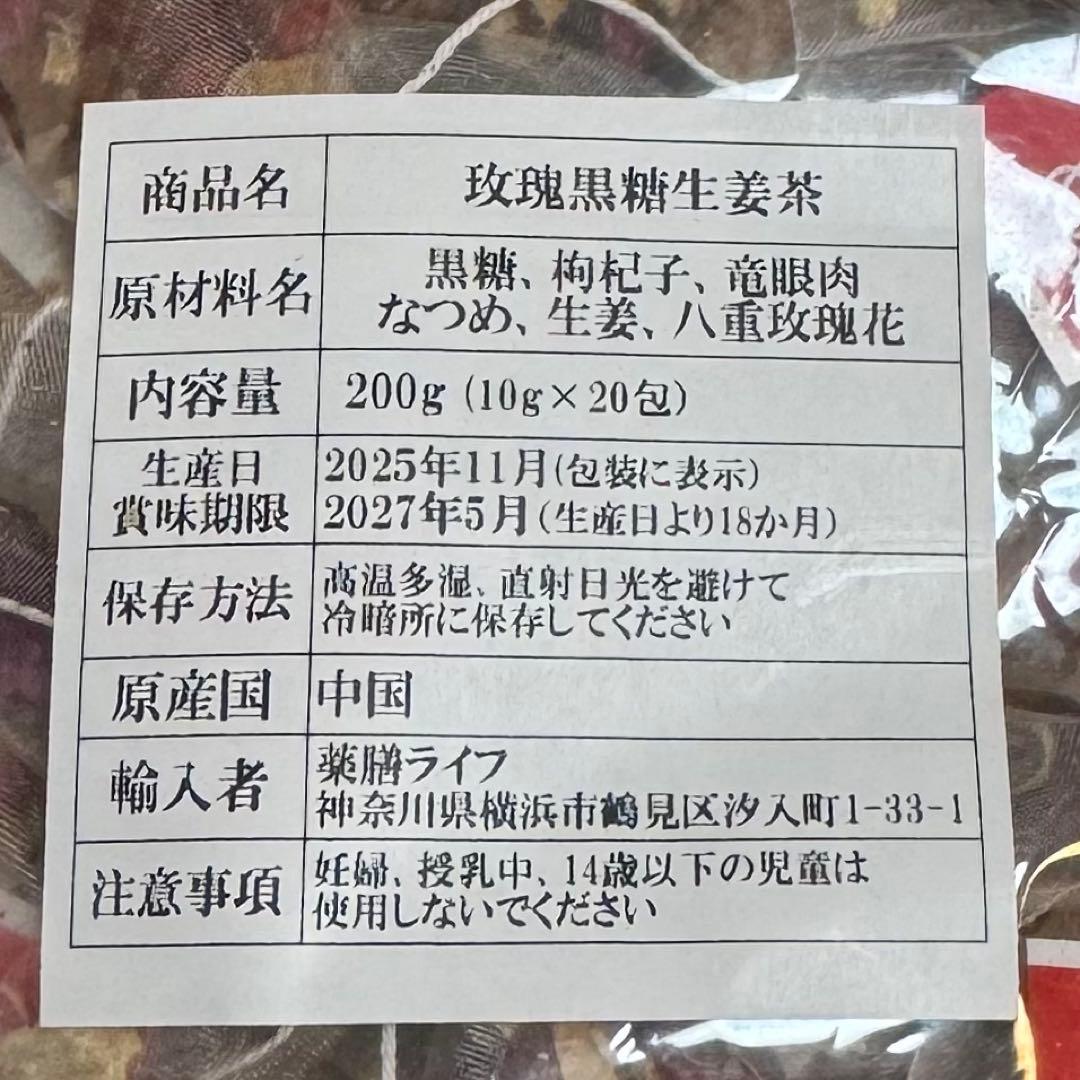 商品名 玫瑰黒糖生姜茶
原材料名 黒糖、枸杞子、竜眼肉
なつめ、生姜、八重玫瑰花
内容量 200g (10g×20包)
生産日 2025年11月(包装に表示)
賞味期限 2027年5月(生産日より18か月)
保存方法 高温多湿、直射日光を避けて
冷暗所に保存してください
原産国 中国
輸入者 薬膳ライフ
神奈川県横浜市鶴見区汐入町1-33-1
注意事項 妊婦、授乳中、14歳以下の児童は
使用しないでください